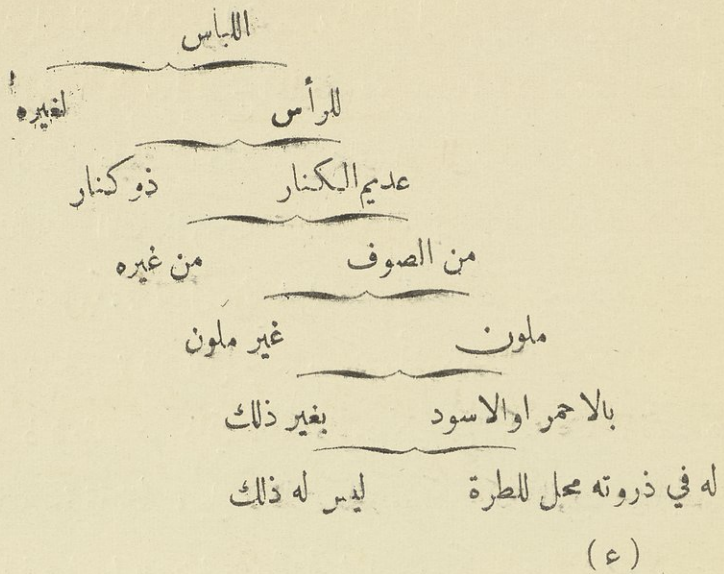 اللباس
للرأس لغيره
عديم الكنار ذو كنار
من الصوف من غيره
ملون غير ملون
بالاحمر او الاسود بغير ذلك
له في ذروته محل للطرة ليس له ذلك
(ع)